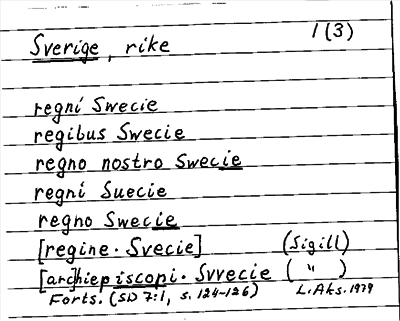 Sverige, rike 1(3)
regni Swecie
regibus Swecie
regno nostro Swecie
regni Suecie
regno Swecie
[regine. Svecie] (Sigill)
[arc]hiepiscopi. Svvecie ( " )
Forts. (SD 7:1, s. 124-126) L. Aks. 1979